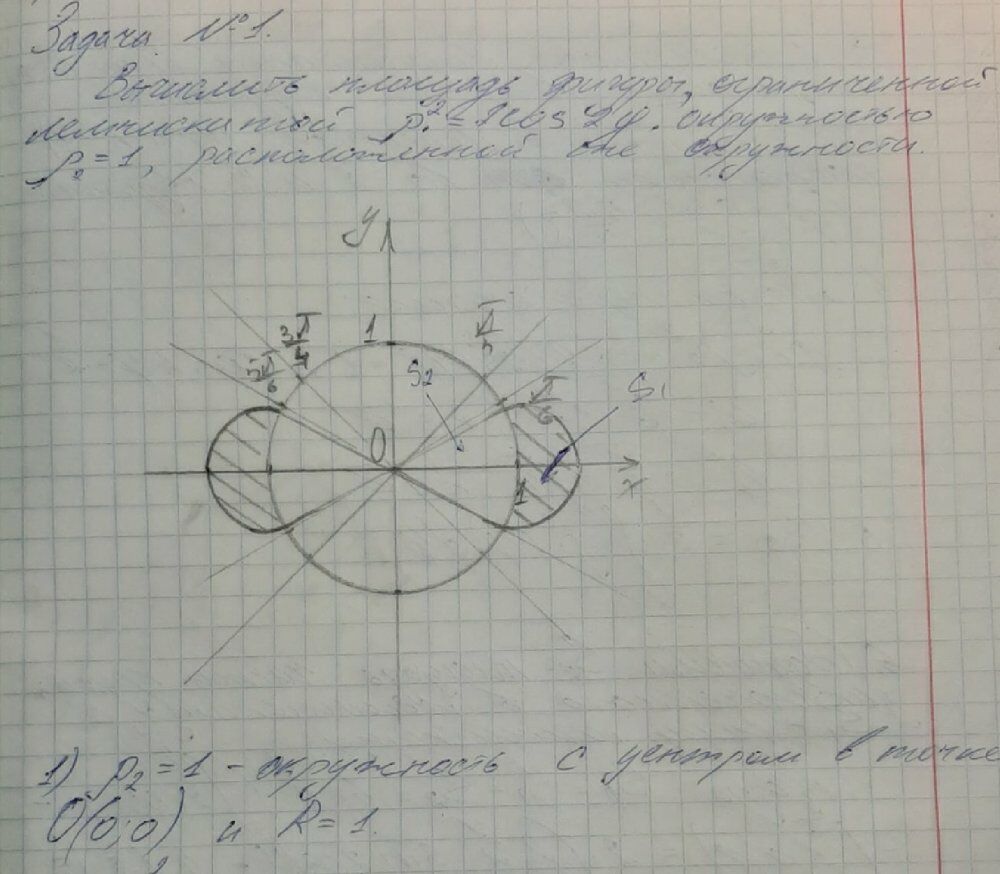 Задача №1.
Вычислить площадь фигуры, ограниченной
лемнискатой ρ₁² = 2cos2φ. окружностью
ρ₂ = 1, расположенной вне окружности.
y
3π/4
1
π/5
5π/6
S₂
π/6
S₁
0
1
x
1) ρ₂ = 1 - окружность с центром в точке
O(0;0) и R = 1.